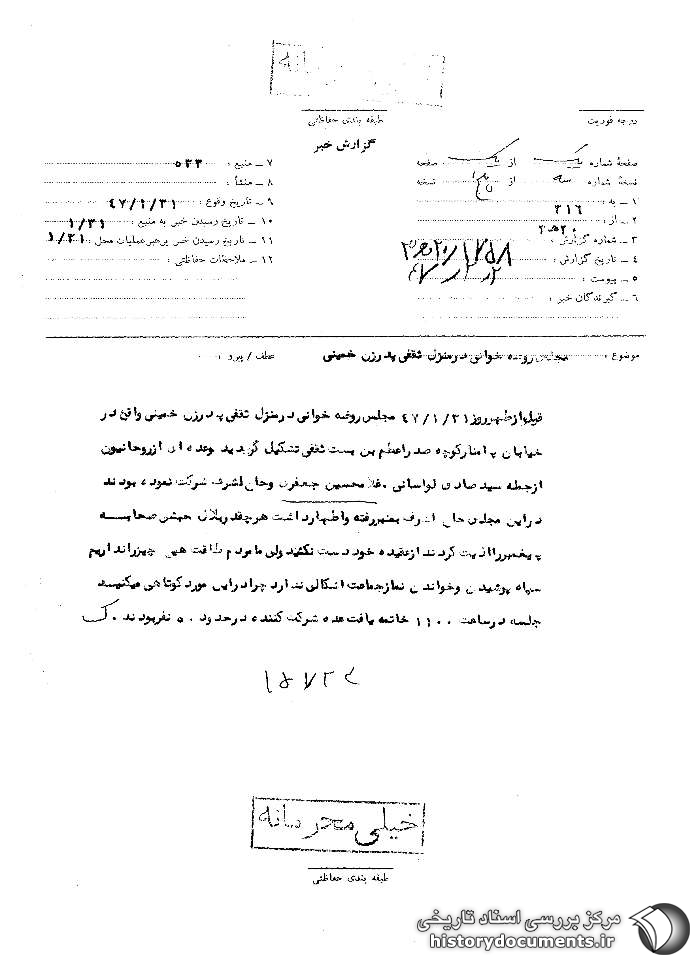 خیلی محرمانه
درجه فوریت
طبقه بندی حفاظتی
گزارش خبر
صفحهٔ شماره یک از یک صفحه
نسخهٔ شماره سه از نسخه
۱ ـ به : ۳۱۶
۲ ـ از : ۲۰ ه‍ ۳
۳ ـ شماره گزارش :
۴ ـ تاریخ گزارش :
۵ ـ پیوست :
۶ ـ گیرندگان خبر :
۷ ـ منبع : ۵۳۳
۸ ـ منشأ :
۹ ـ تاریخ وقوع : ۴۷/۱/۳۱
۱۰ ـ تاریخ رسیدن خبر به منبع : ۱/۳۱
۱۱ ـ تاریخ رسیدن خبر برهبر عملیات محل : ۱/۳۱
۱۲ ـ ملاحظات حفاظتی :
موضوع : مجلس روضه خوانی در منزل ثقفی پدر زن خمینی
عطف / پیرو :
قبل از ظهر روز ۴۷/۱/۳۱ مجلس روضه خوانی در منزل ثقفی پدر زن خمینی واقع در
خیابان پامنار کوچه صدراعظم بن بست ثقفی تشکیل گردید و عده ای از روحانیون
از جمله سید صادق لواسانی ـ غلامحسین جعفری و حاج اشرف شرکت نموده بودند
در این مجلس حاج اشرف بمنبر رفته و اظهار داشت هر چقدر بلال حبشی صحابه
پیغمبر را اذیت کردند از عقیده خود دست نکشید ولی ما مردم طاقت هیچ چیز را نداریم
سیاه پوشیدن و خواندن نماز جماعت اشکالی ندارد چرا در این مورد کوتاهی میکنید
جلسه در ساعت ۱۱۰۰ خاتمه یافت عده شرکت کننده در حدود ۵۰ نفر بودند . ک
خیلی محرمانه
طبقه بندی حفاظتی
مرکز بررسی اسناد تاریخی
historydocuments.ir